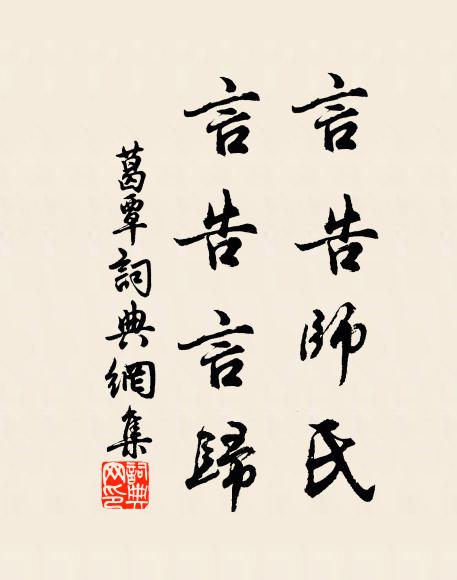 言告師氏
言告言歸
葛覃詞典網集
詞典網印